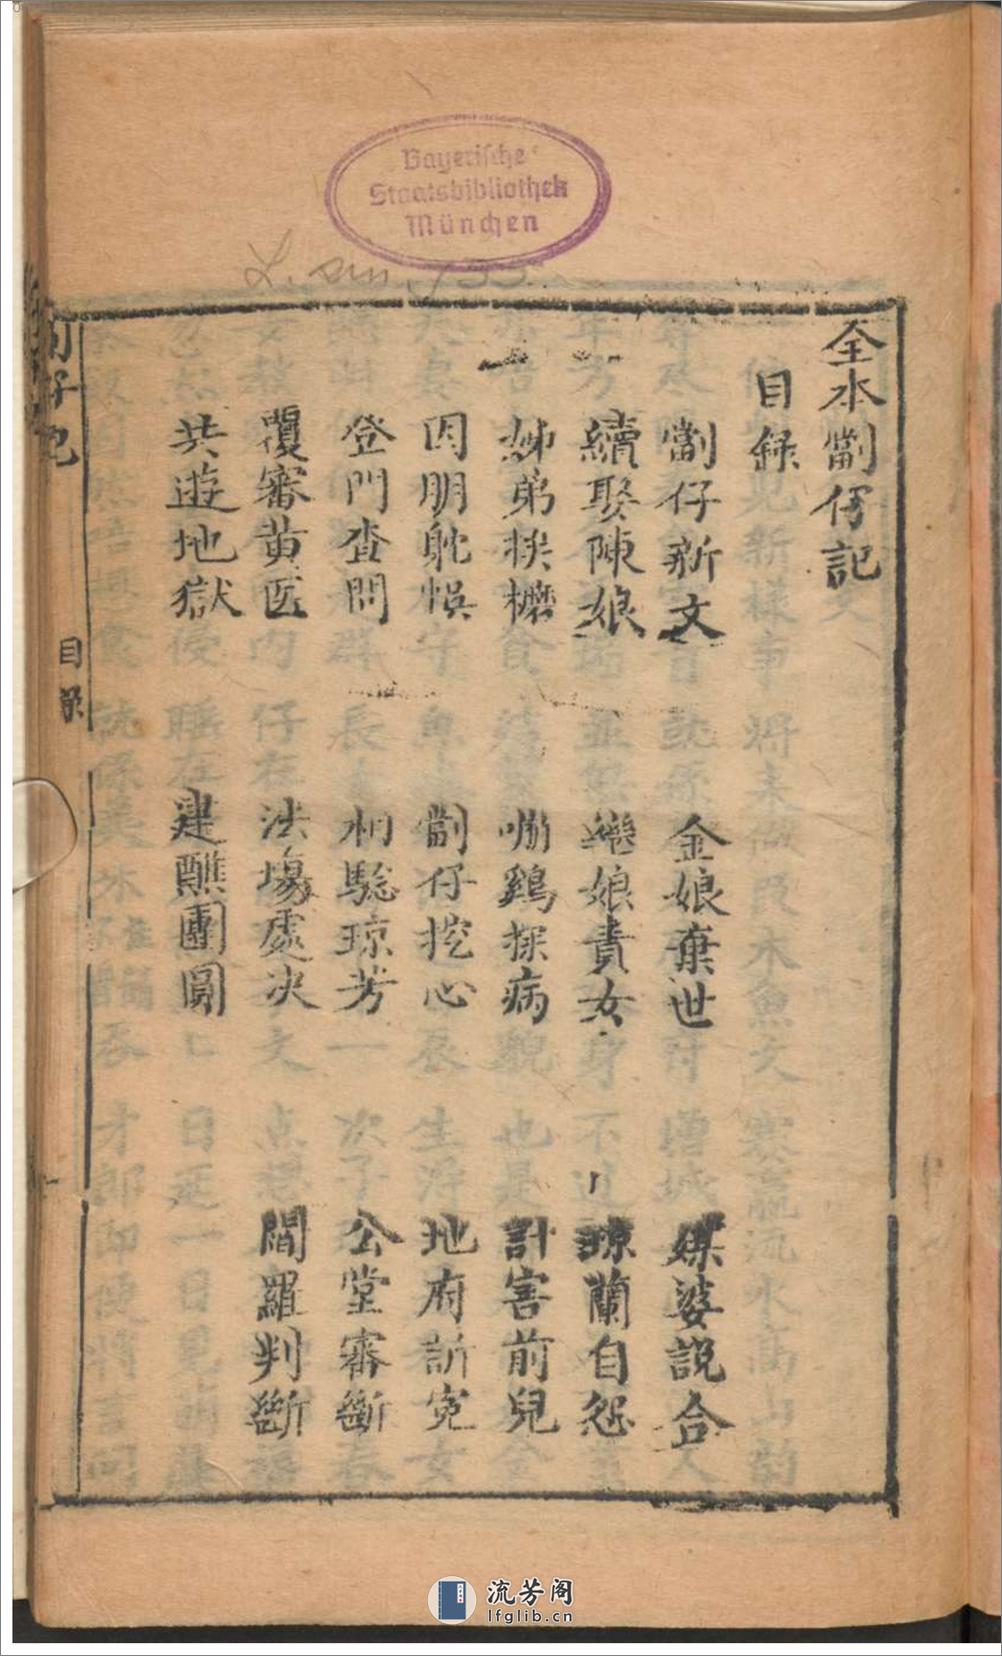 Bayerische
Staatsbibliothek
München
L. sin.
全本劏仔記
目錄
劏仔新文 金娘棄世 媒婆說合
續娶陳娘 娘責女 瓊蘭自怨
姊弟挨檫 嘣鷄探病 計害前兒
因朋躭悞 劏仔挖心 地府訴寃
登門查問 相騐琼芳 公堂審斷
覆審黄医 法塲處决 閻羅判斷
共遊地獄 建醮團圓
劏仔記
目錄
流芳阁
lfglib.cn